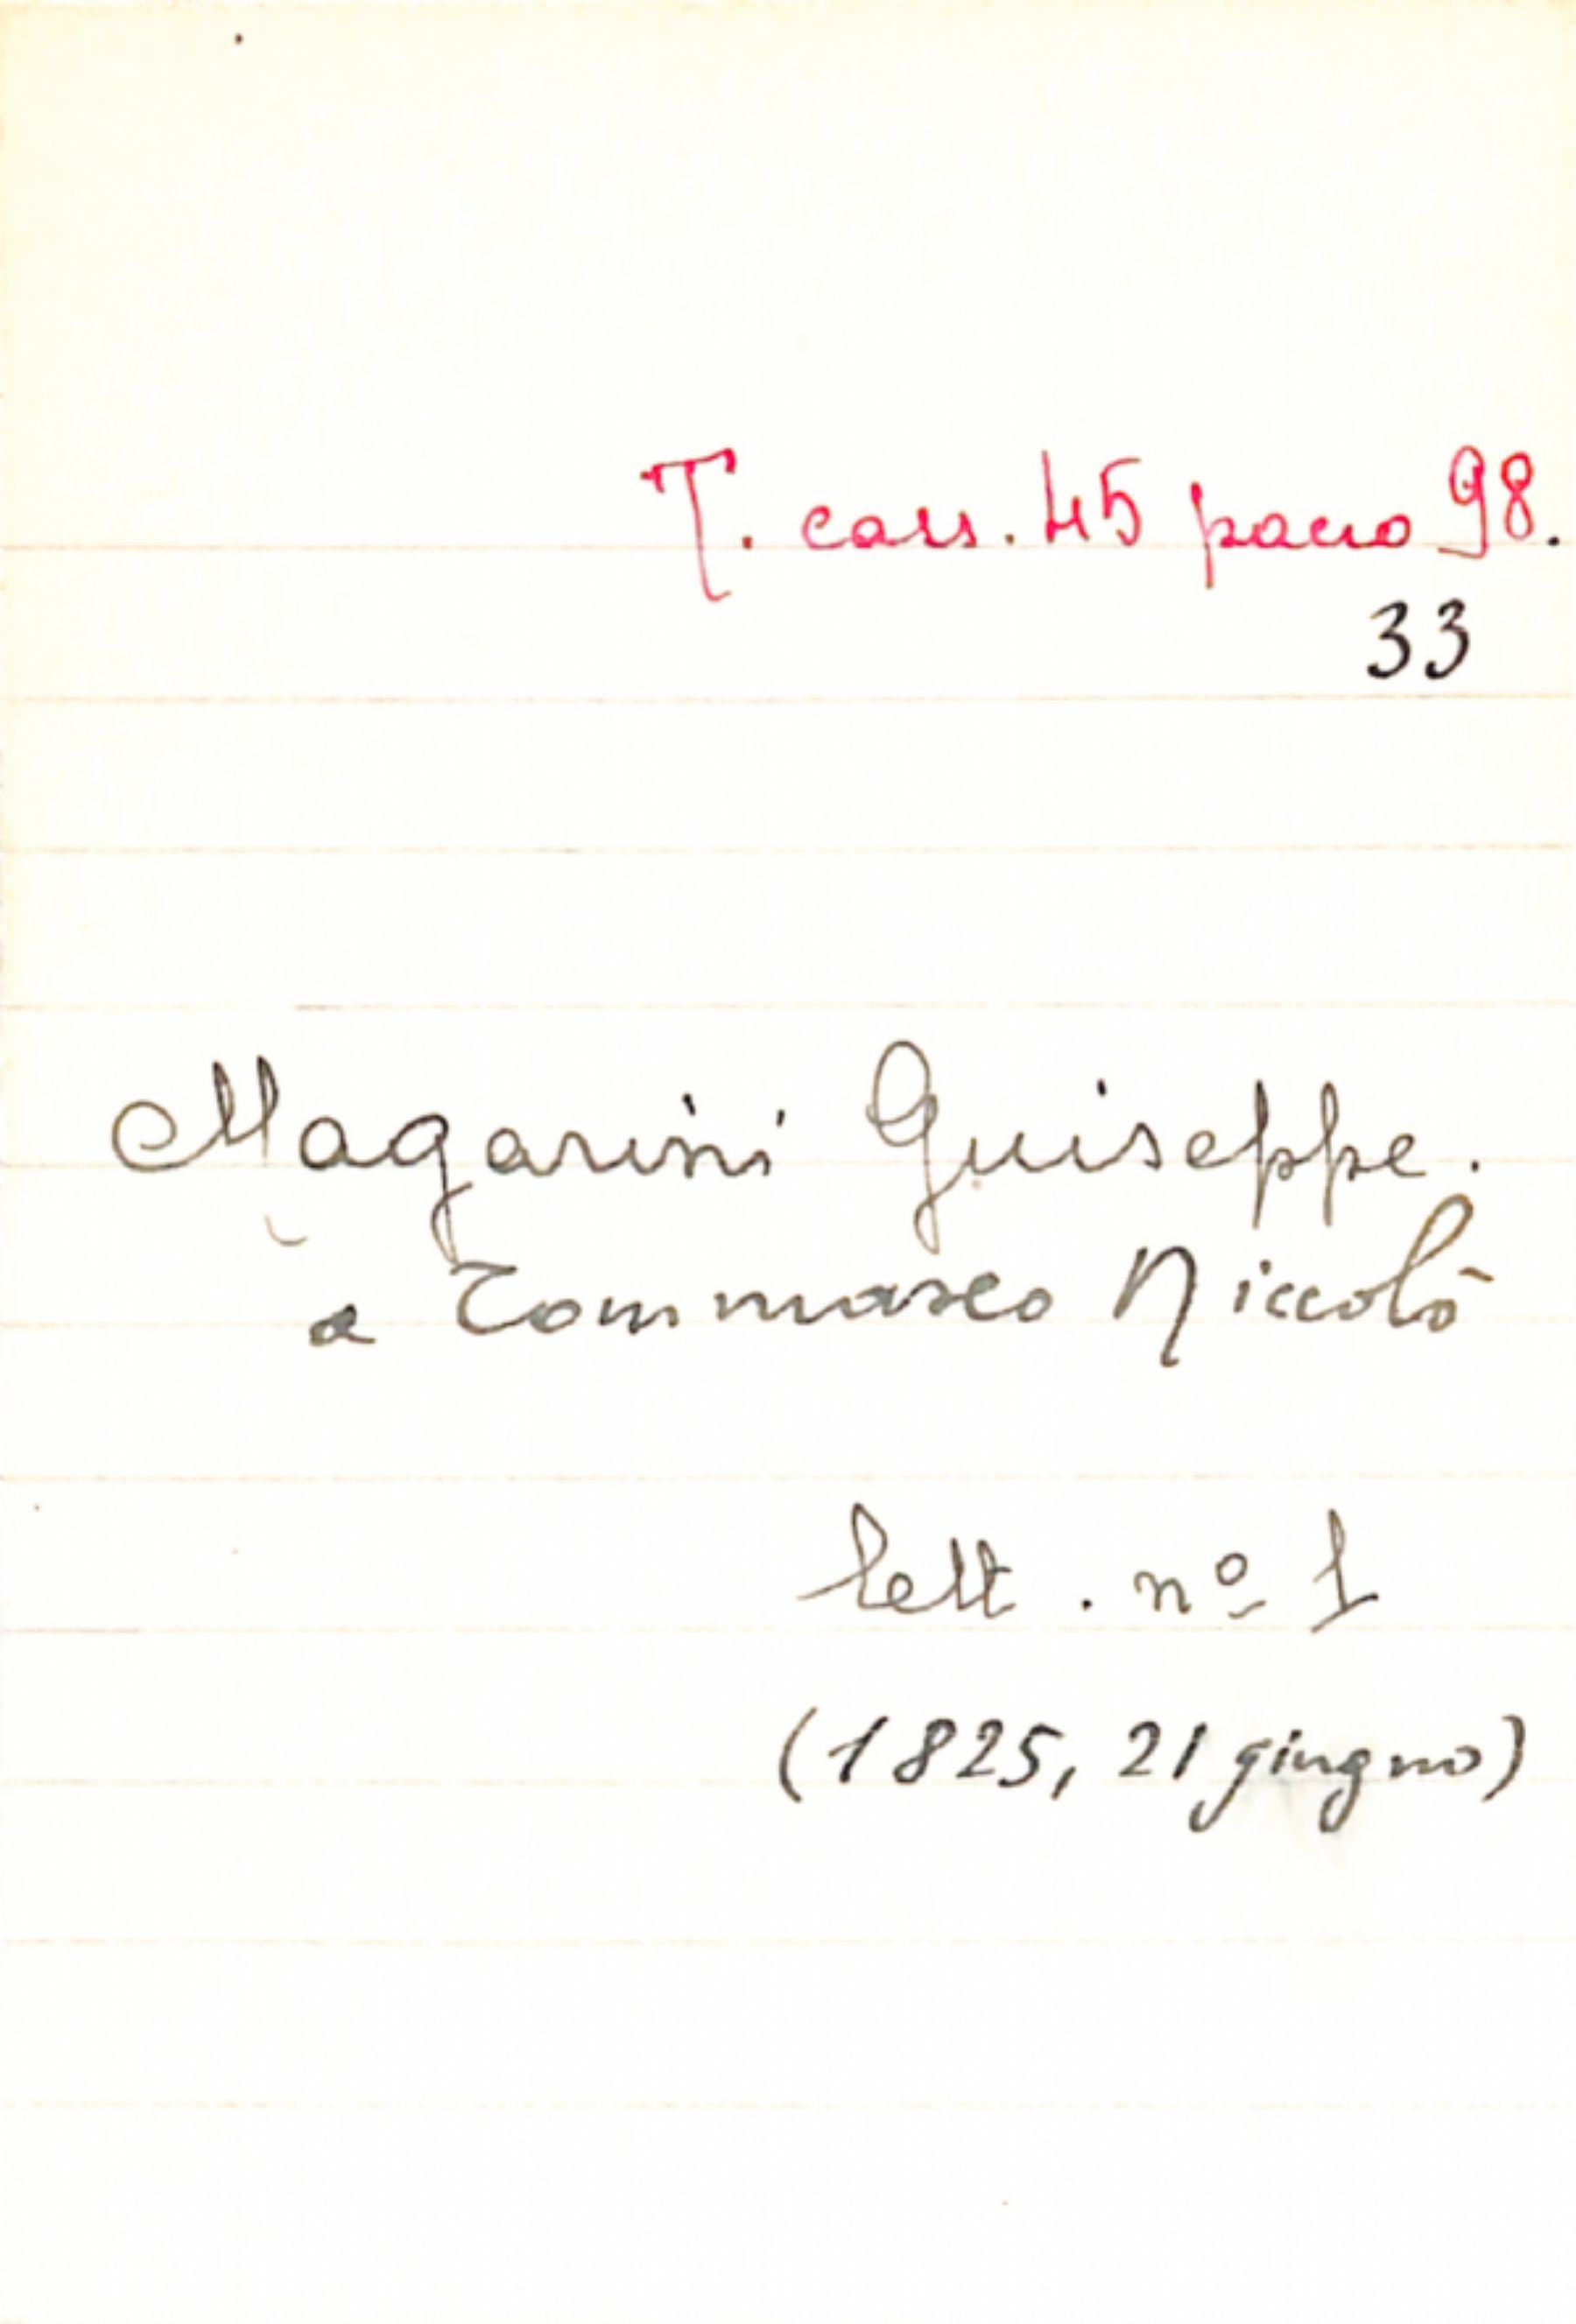 T. cass. 45 pacco 98.
33
Magarini Guiseppe.
a Tommaseo Niccolò
lett. nº 1
(1825, 21 giugno)